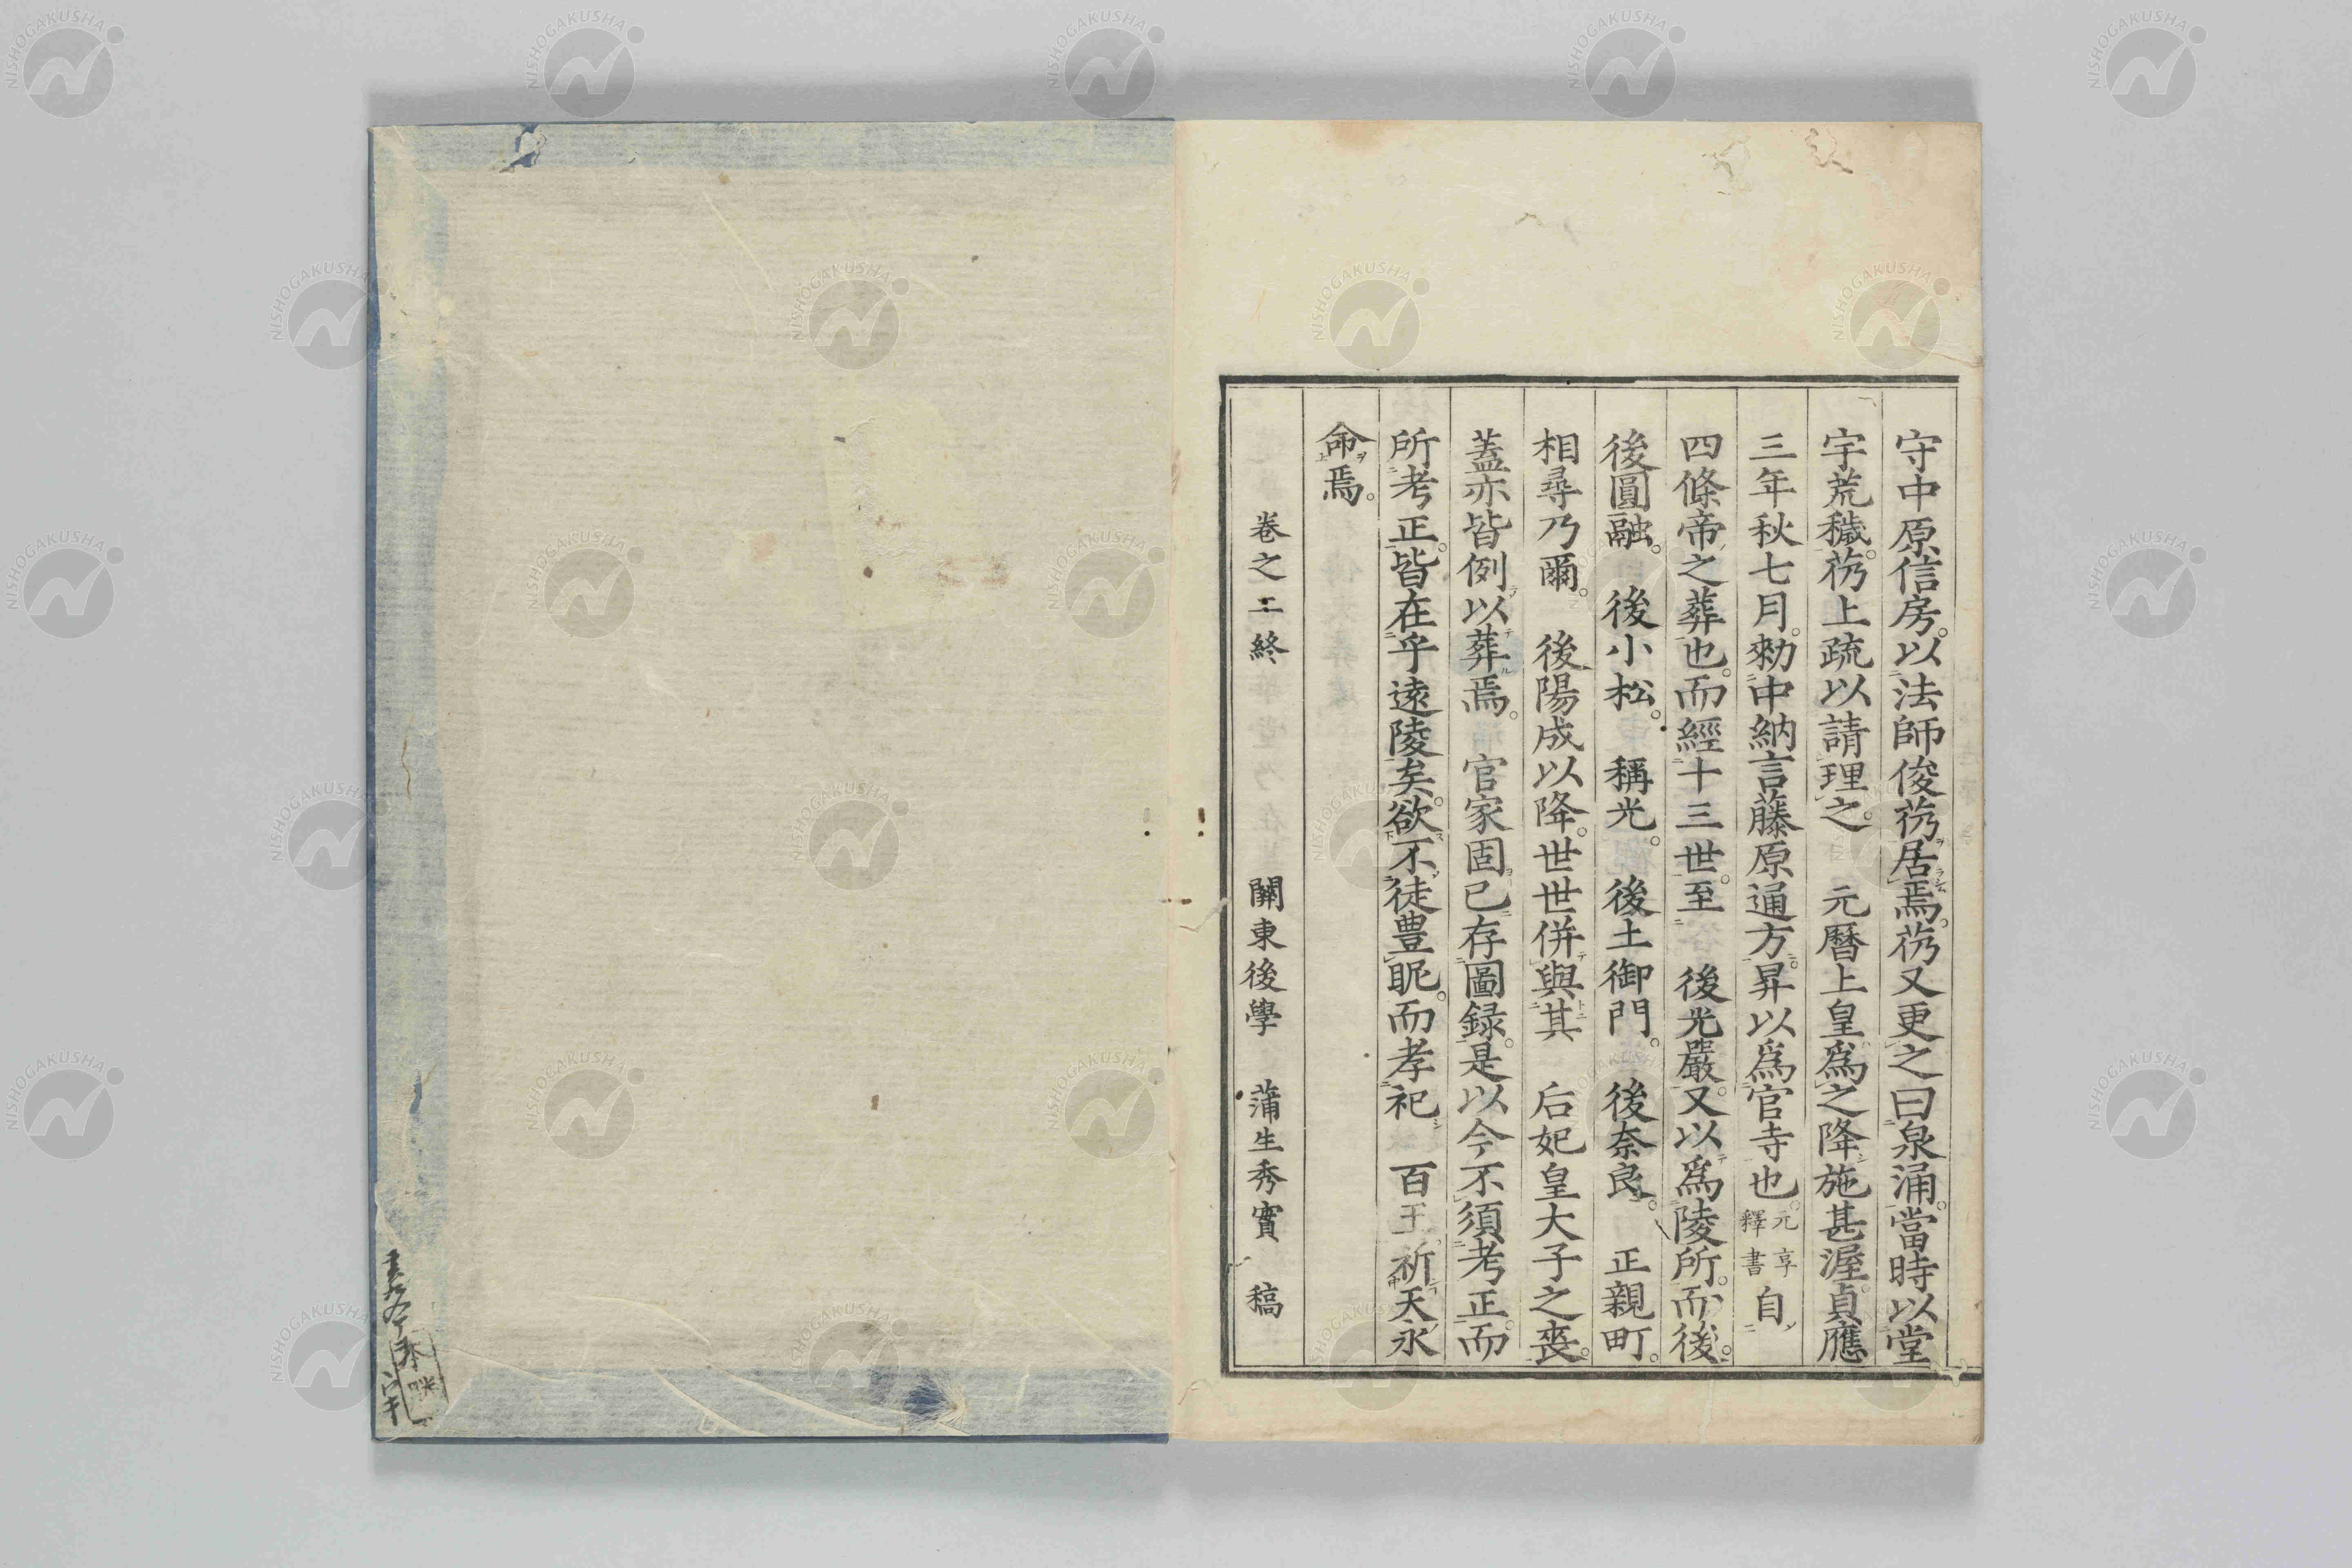 守中原信房。以法師俊芿居焉。芿又更之曰泉涌。當時以堂
宇荒穢。芿上疏以請理之。　元曆上皇爲之降施甚渥。貞應
三年秋七月。勑中納言藤原通方。昇以爲官寺也。元亨釋書自
四條帝之葬也。而經十三世。至　後光嚴。又以爲陵所。而後。
後圓融。　後小松。　稱光。　後土御門。　後奈良。　正親町。
相尋乃爾。　後陽成以降。世世併與其　后妃皇大子之喪。
蓋亦皆例以葬焉。　官家固已存圖録。是以今不須考正。而
所考正。皆在乎遠陵矣。欲不徒豊昵。而孝祀　百王祈天永
命焉。
卷之二終　關東後學　蒲生秀實　稿
NISHOGAKUSHA